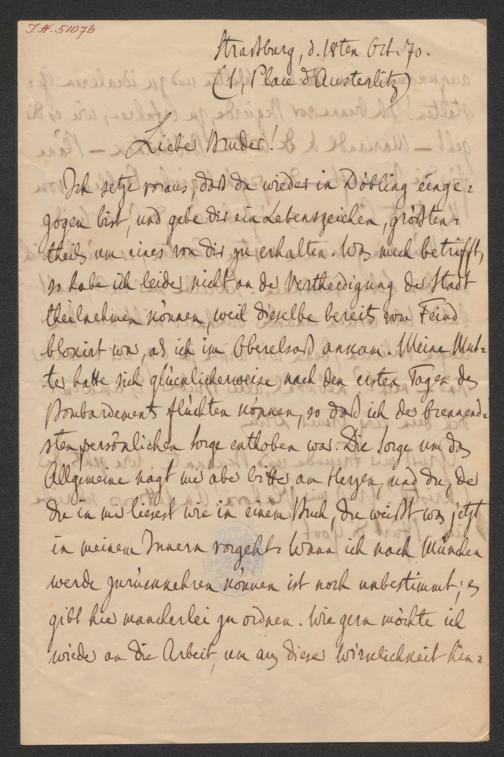 I.N. 51076
Straßburg, d. 18ten Oct. 70.
(1, Place d'Austerlitz)
Lieber Bruder!
Ich setze voraus, daß du wieder in Döbling einge=
zogen bist, und gebe dir ein Lebenszeichen, größten=
theils um eines von dir zu erhalten. Was mich betrifft,
so habe ich leider nicht an der Vertheidigung der Stadt
theilnehmen können, weil dieselbe bereits vom Feind
blokirt war, als ich im Oberelsaß ankam. Meine Mut=
ter hatte sich glücklicherweise nach den ersten Tagen des
Bombardements flüchten können, so daß ich der brennend=
sten persönlichen Sorge enthoben war. Die Sorge um das
Allgemeine nagt mir aber bitter am Herzen, und du, der
du in mir liesest wie in einem Buch, du weißt was jetzt
in meinem Innern vorgeht. Wann ich nach München
werde zurückkehren können ist noch unbestimmt; es
gibt hier mancherlei zu ordnen. Wie gern möchte ich
wieder an die Arbeit, um aus dieser Wirklichkeit hin=